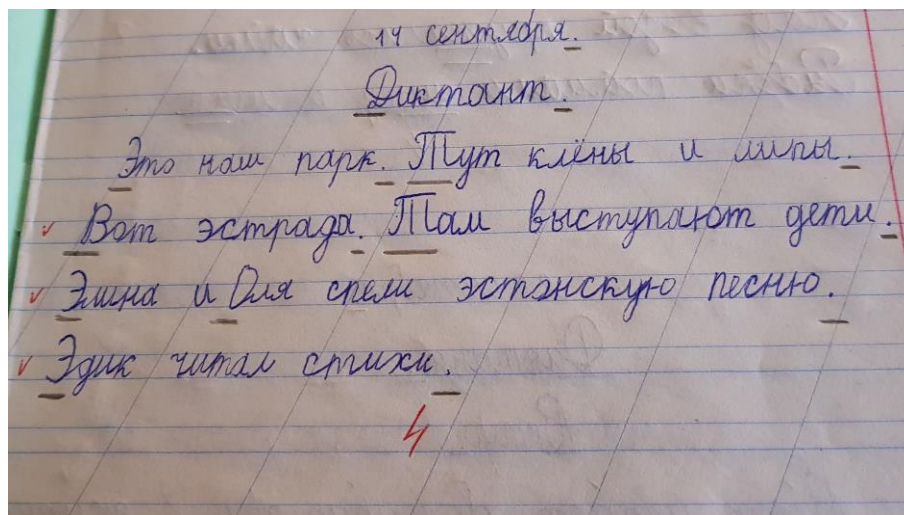 14 сентября.
Диктант.
Это наш парк. Тут клёны и липы.
Вот эстрада. Там выступают дети.
Элина и Оля спели эстонскую песню.
Эдик читал стихи.
4